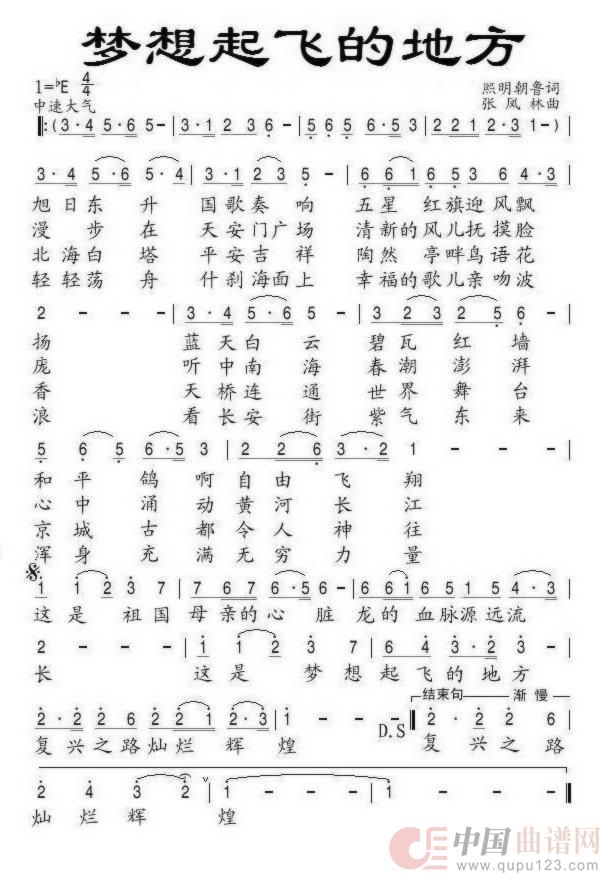 梦想起飞的地方
1=♭E 4/4
照明朝鲁词
中速大气
张凤林曲
‖:(3·4 5·6 5-|3·1 2 3 6-|5 6 5 6 5·3 5|2 2 1 2 3 1-)|
3·4 5 6 5·4 5|3·1 2 3 6-|6 6 1 6 5 5 4·3|
旭日东升 国歌奏响 五星红旗迎风飘
漫步在天安门广场 清新的风儿抚摸脸
北海白塔 平安吉祥 陶然亭畔鸟语花
轻轻荡舟 什刹海面上 幸福的歌儿亲吻波
2 - - -|3·4 5·6 5-|3 2 3 2 5 6-|
扬 蓝天白云 碧瓦红墙
庞 听中南海 春潮澎湃
香 天桥连通 世界舞台
浪 看长安街 紫气东来
5 6 5 6·5 3|2 2 6 3·2|1 - - -|
和平鸽啊自由飞翔
心中涌动黄河长江
京城古都令人神往
浑身充满无穷力量
1 1 2 3 7|7 6 7 6 5 6·|6 6 1 5 1 2 5 4·3|
这是祖国母亲的心脏 龙的血脉源远流
2 - - -|1 1 2 3 7|6 4 3·2 2 3|
长 这是梦想起飞的地方
结束句 渐慢
2·2 2 6 2 2 1 2·3|1 - - -‖2·2 2 6|
D.S
复兴之路灿烂辉煌 复兴之路
2 4 3 2 ∨|1 - - -|1 - - -‖
灿烂辉煌
中国曲谱网
www.qupu123.com